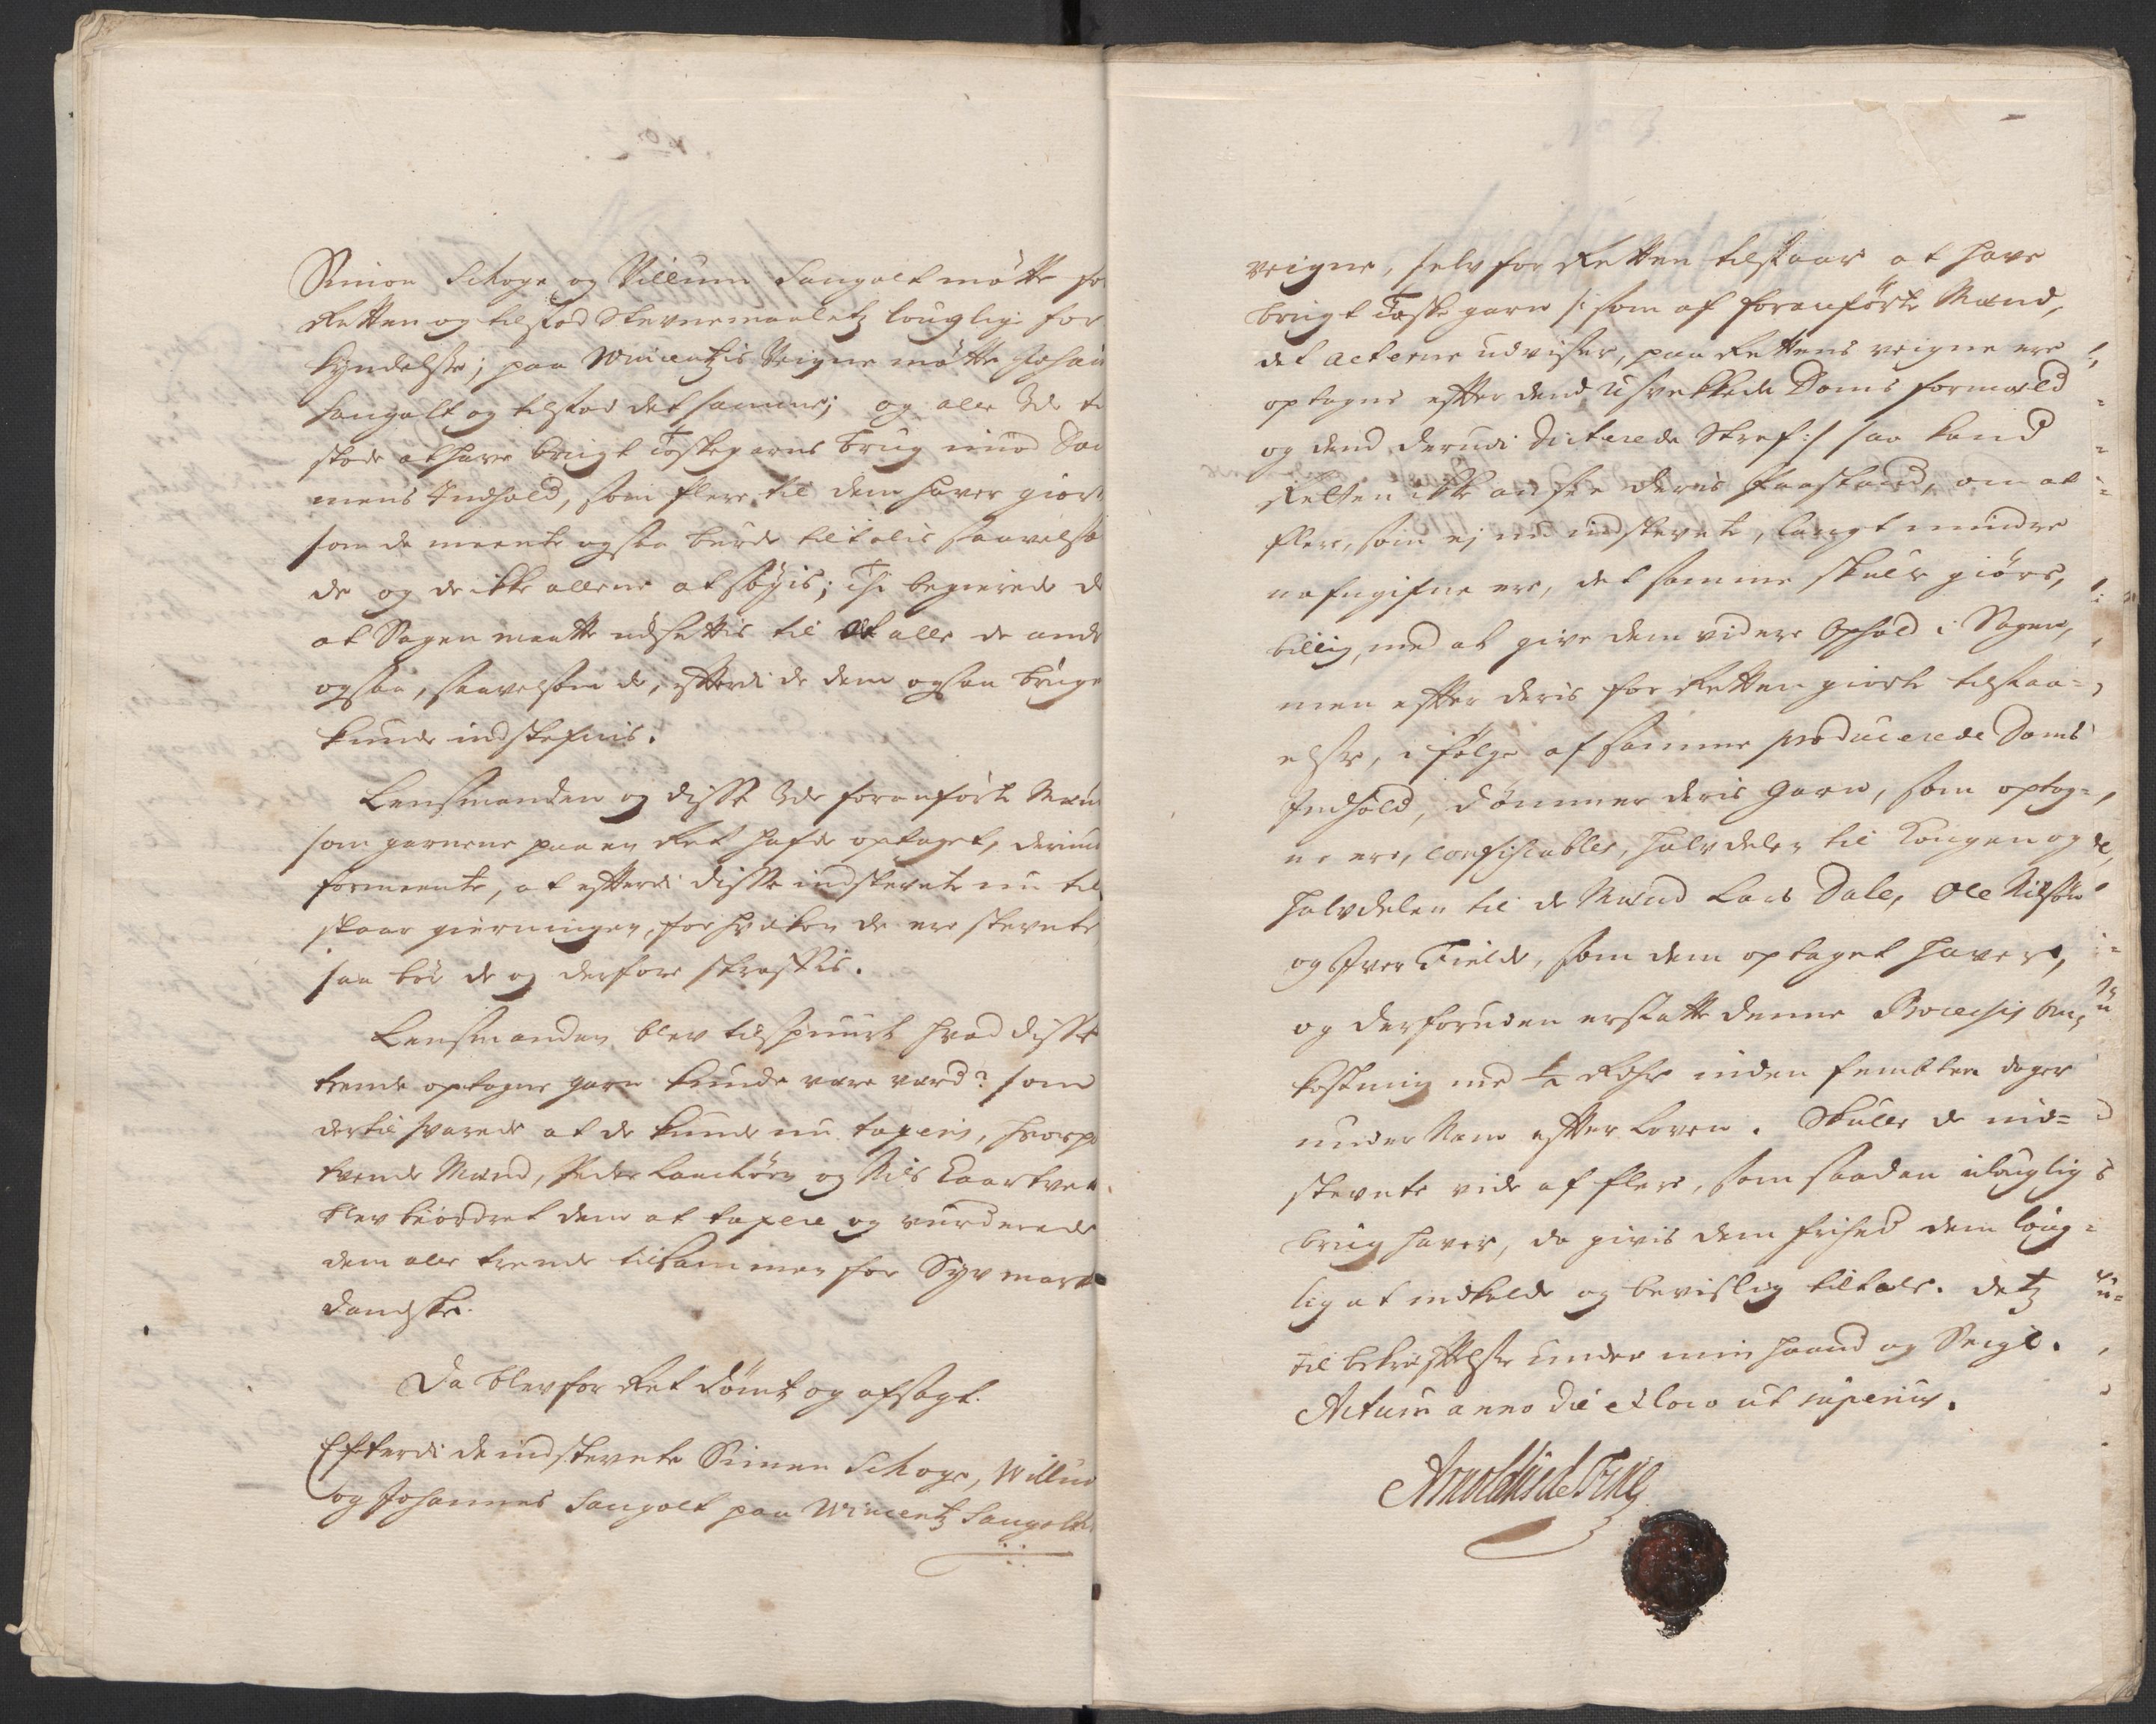 Simon Schoge og Villum Sangolt mötte for
Retten og tilstod Stevnemaaletz louglig for
kyndelse; paa Wincentzis Veigne mötte Johan
Sangolt og tilstod det samme; og alle 3de til
stode at have brugt Torskegarns brug imod Dom
mens Indhold, som flere til dem haver giort
som de meente ogsaa burde tiltalis saavelsom
de og de ikke allene at søgis; Thi begierede de
at Sagen maatte udsettis til at alle de andre
ogsaa, saavelsom de, efterdi de dem ogsaa bruge
kunde indstefnis.
Lensmanden og disse 3de foranførte Mænd
som garnene paa en Ret hafde optaget, derimod
formeente, at efterdi disse indstevnte nu til
staar gierningen, for hvilken de ere stevnte
saa bör de og derfore straffis.
Lensmanden blev tilspurt hvad disse
trende optagne garn kunde være værd? som
dertil svarede at de kunde nu taxeris, hvorpaa
tvende Mænd, Peder og Nils
blev beordret dem at taxere og vurderede
dem alle trende tilsammen for Syv mark
danske.
Da blev for Ret dömt og afsagt.
Efterdi de indstevnte Simon Schoge, Willum
og Johannes Sangolt paa Wincentz Sangolts
veigne, selv for Retten tilstaar at have
brugt Torskegarn /: som af foranførte Mænd,
det acterne udviser, paa Rettens veigne ere
optagne efter dend usvekkede Doms formæld
og dend derudi dicterede Straf :/ saa kand
Retten ikke ansee deris Paastand, om at
flere, som ej ere indstevnte, langt mindre
nafngifne ere, det samme skulle giøre,
billig, med at give dem videre Ophold i Sagen,
men efter deris for Retten giorte tilstaa-
else, i følge af samme producerede Doms
Indhold, dömmer deris garn, som optag-
ne ere, confiscables, halvdelen til Kongen og
halvdelen til de Mænd Lars Dale, Ole Nilsøn
og Iver Fielde, som dem optaget haver,
og derforuden erstatte denne Processis om-
kostning med ½ Rdlr inden fembten dager
under Nam efter Loven. Skulle de ind-
stevnte vide af flere, som saadan uloglig
brug haver, da givis dem frihed dem loug-
lig at indkalde og bevislig tiltale. Detz
til bekreftelse under min haand og Seigl.
Actum anno die et loco ut superius.
Arnoldus de Fine